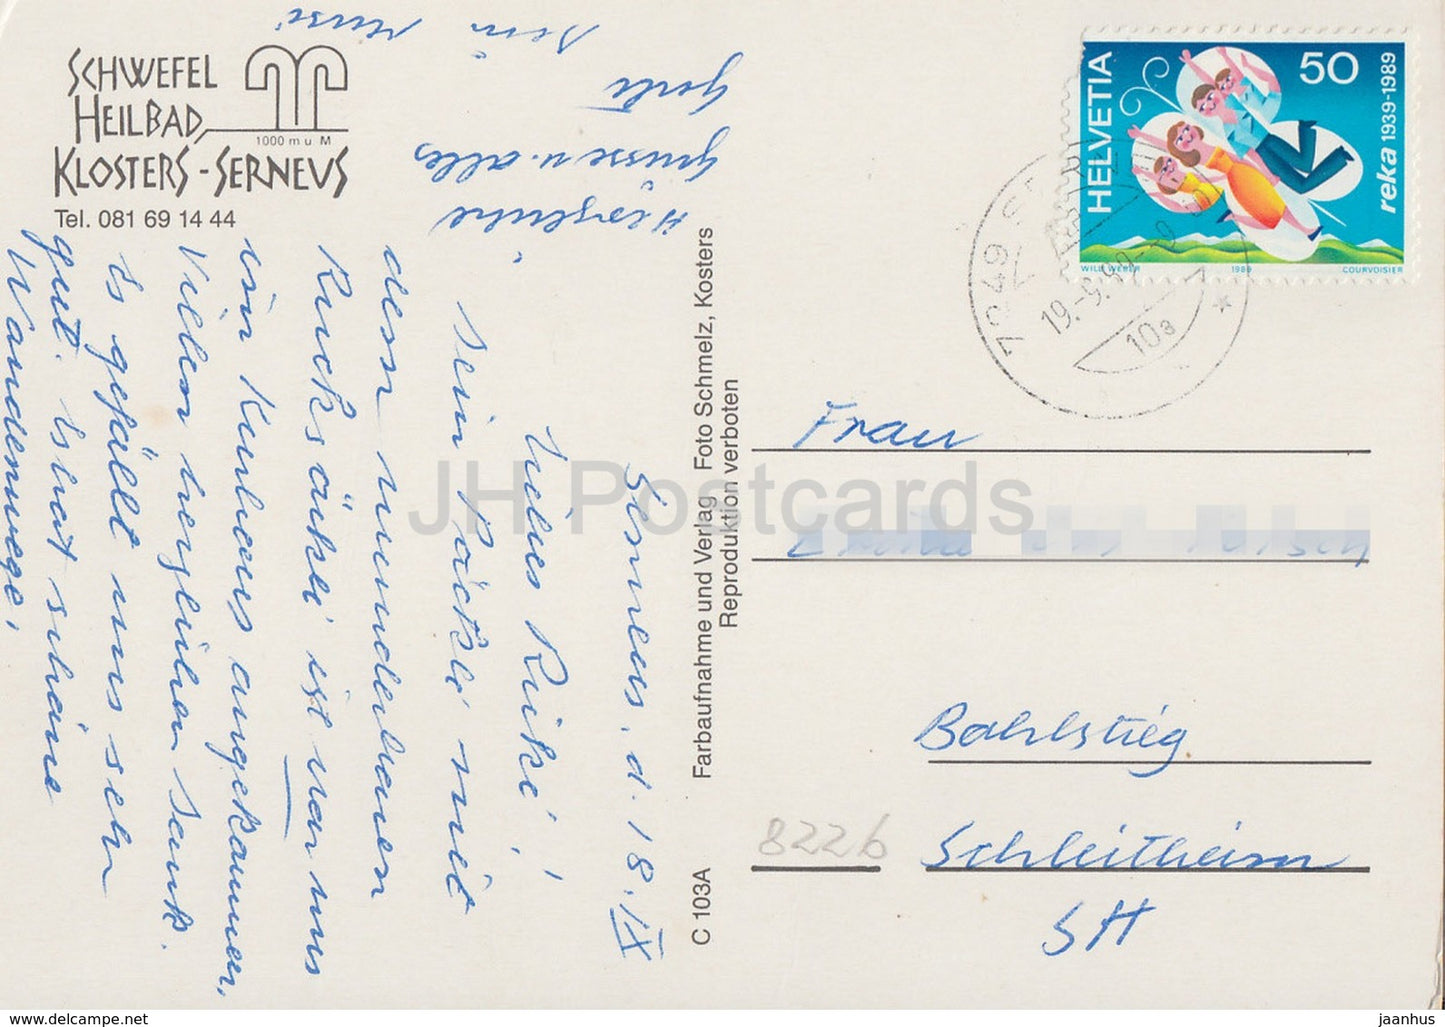 SCHWEFEL
HEILBAD
1000 m u M
KLOSTERS - SERNEUS
Tel. 081 69 14 44
Serneus, d. 18. IX
Liebes Riki!
Dein Päckli mit
dem wunderbaren
Rucksäckli ist von uns
im Kurhaus angekommen,
Vielen herzlichen Dank.
Es gefällt uns sehr
gut. Es hat schöne
Wanderwege,
Herzliche
Grüsse u. alles
Gute
Dein
Farbaufnahme und Verlag Foto Schmelz, Kosters
Reproduktion verboten
C 103A
HELVETIA
50
reka 1939-1989
WILLI WEBER 1989 COURVOISIER
7249 SERNEUS
19.-9.89-9
10a
Frau
Bahlstieg
8226
Schleitheim
SH
JH Postcards
www.delcampe.net
jaanhus